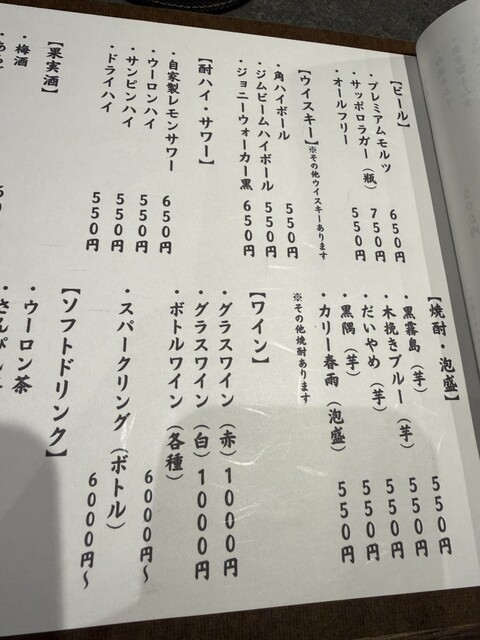 【ビール】
・プレミアムモルツ 650円
・サッポロラガー（瓶） 750円
・オールフリー 550円
【ウイスキー】※その他ウイスキーあります
・角ハイボール 550円
・ジムビームハイボール 550円
・ジョニーウォーカー黒 650円
【酎ハイ・サワー】
・自家製レモンサワー 650円
・ウーロンハイ 550円
・サンピンハイ 550円
・ドライハイ 550円
【果実酒】
・梅酒
【焼酎・泡盛】
・黒霧島（芋） 550円
・木挽きブルー（芋） 550円
・だいやめ（芋） 550円
・黒隅（芋） 550円
・カリー春雨（泡盛） 550円
※その他焼酎あります
【ワイン】
・グラスワイン（赤）1000円
・グラスワイン（白）1000円
・ボトルワイン（各種） 6000円〜
・スパークリング（ボトル） 6000円〜
【ソフトドリンク】
・ウーロン茶